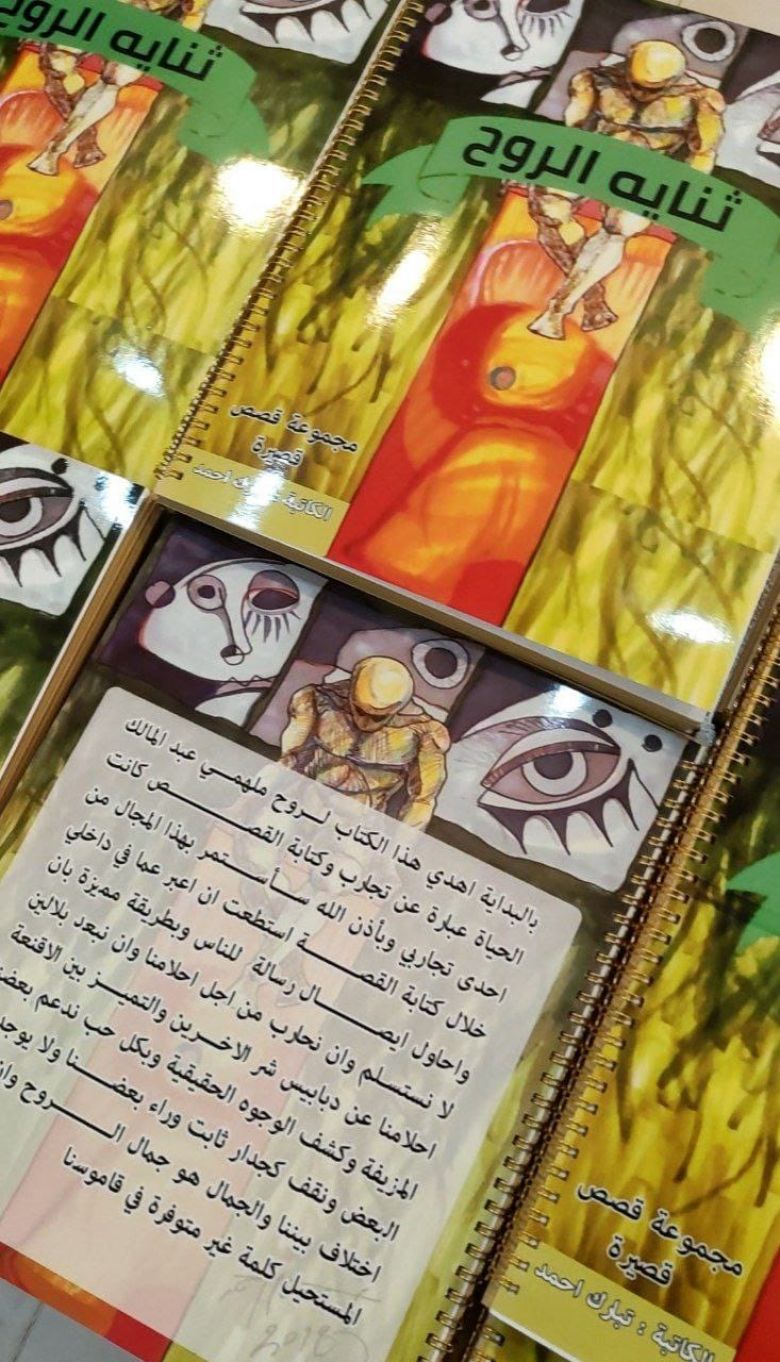 ثنايه الروح
ثنايه الروح
مجموعة قصص
قصيرة
الكاتبة : تبارك احمد
بالبداية اهدي هذا الكتاب لروح ملهمي عبد المالك
الحياة عبارة عن تجارب وكتابة القصص كانت
احدى تجاربي وبأذن الله سأستمر بهذا المجال من
خلال كتابة القصة استطعت ان اعبر عما في داخلي
واحاول ايصال رسالة للناس وبطريقة مميزة بان
لا نستسلم وان نحارب من اجل احلامنا وان نبعد بلالين
احلامنا عن دبابيس شر الاخرين والتميز بين الاقنعة
المزيفة وكشف الوجوه الحقيقية وبكل حب ندعم بعضنا
البعض ونقف كجدار ثابت وراء بعضنا ولا يوجد
اختلاف بيننا والجمال هو جمال الروح وان
المستحيل كلمة غير متوفرة في قاموسنا
2018
مجموعة قصص
قصيرة
الكاتبة : تبارك احمد